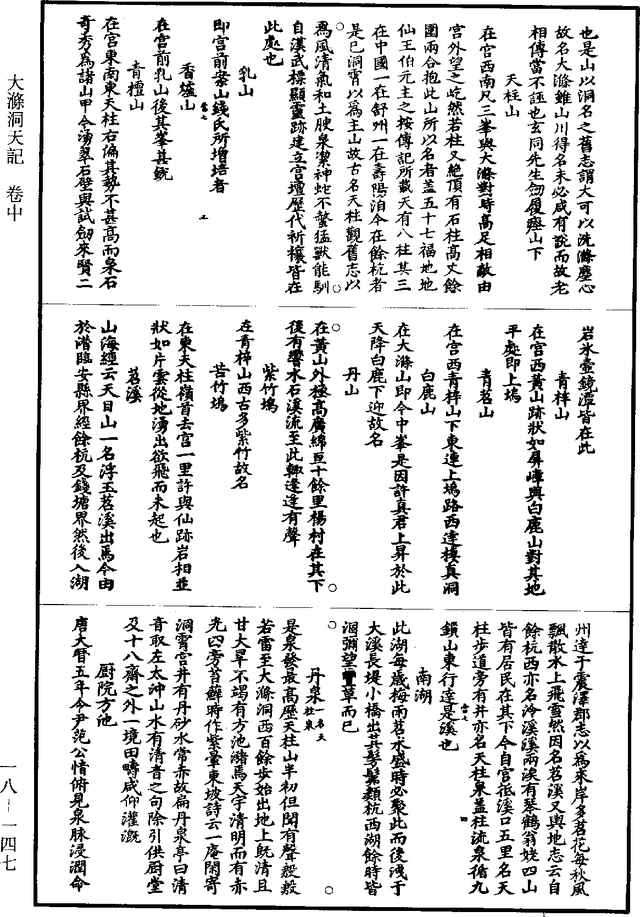 大滌洞天記　卷中
也是山以洞名之舊志謂大可以洗滌塵心
故名大滌雖山川得名未必咸有說而故老
相傳當不誣也玄同先生劒履瘞山下
天柱山
在宮西南凡三峯與大滌對峙高足相敵由
宮外望之屹然若柱又絶頂有石柱高丈餘
圍兩合抱此山所以名者蓋五十七福地地
仙王伯元主之按傳記所載天有八柱其三
在中國一在舒州一在壽陽洎今在餘杭者
是已洞霄以爲主山故古名天柱觀舊志以
爲風清氣和土腴泉潔神蛇不螫猛獸能馴
自漢武標顯靈跡建立宮壇歷代祈禳皆在
此處也
乳山
即宮前案山錢氏所增培者
香爐山
在宮前乳山後其峯甚銳
青檀山
在宮東南東天柱右偏其勢不甚高而泉石
奇秀爲諸山甲今湧翠石壁與試劒來賢二
岩氷壺鏡潭皆在此
青梓山
在宮西黃山跡狀如屏嶂與白鹿山對其地
平處即上塢
青茗山
在宮西青梓山下東連上塢路西達棲真洞
白鹿山
在大滌山即今中峯是因許真君上昇於此
天降白鹿下迎故名
丹山
在黃山外極高廣綿亘十餘里楊村在其下
復有響水石溪流至此輙逢逢有聲
紫竹塢
在青梓山西古多紫竹故名
苦竹塢
在東天柱嶺首去宮一里許與仙跡岩相並
狀如片雲從地湧出欲飛而未起也
苕溪
山海經云天目山一名浮玉苕溪出焉今由
於潛臨安縣界經餘杭及錢塘界然後入湖
州達于震澤郡志以爲夾岸多苕花每秋風
飄散水上飛雪然因名苕溪又輿地志云自
餘杭西亦名泠溪溪兩涘有琴鶴翁姥四山
皆有居民在其下今自宮抵溪口五里名天
柱步道旁有井亦名天柱泉蓋柱流泉循九
鎖山東行達是溪也
南湖
此湖每歲梅雨苕水盛時必聚此而後淺于
大溪長堤小橋出其髣髴類杭西湖餘時皆
涸彌望豐草而已
丹泉一名天柱泉
是泉發最高歷天柱山半初但聞有聲殷殷
若雷至大滌洞西百餘步始出地上旣清且
甘大旱不竭有方池瀦焉天宇清明而有赤
光四旁苔蘚時作紫暈東坡詩云一庵閑寄
洞霄宮井有丹砂水常赤故扁丹泉亭曰清
音取左太沖山水有清音之句除引供厨堂
及十八齋之外一境田疇咸仰灌漑
厨院方池
唐大曆五年令尹范公愔俯見泉脉浸潤命
一八－一四七